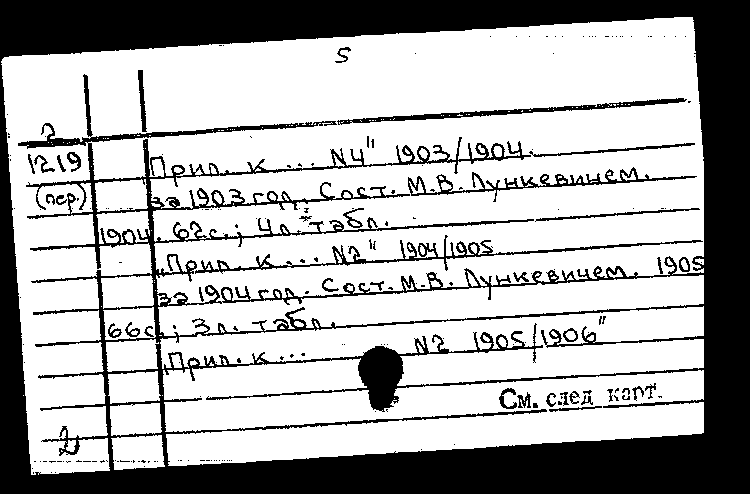 5
2
1219 Прил. к ... N4" 1903/1904.
(пер.) за 1903 год. Сост. М.В. Лункевичем.
1904. 62с.; 4л. табл.
"Прил. к ... N2" 1904/1905
за 1904 год. Сост. М.В. Лункевичем. 1905
66с.; 3л. табл.
"Прил. к ... N2 1905/1906"
См. след карт.
2